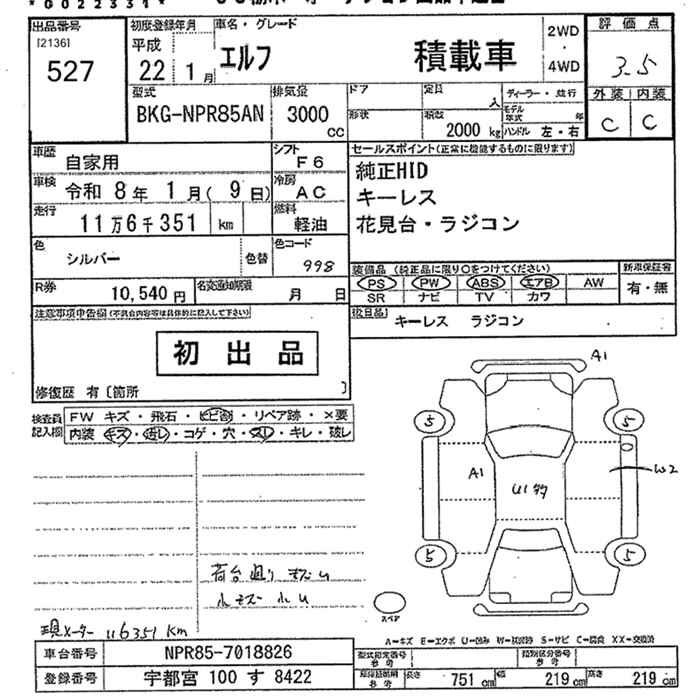 *0022331*
出品番号
[2136]
527
初度登録年月
平成
22 1月
車名・グレード
エルフ 積載車
2WD
・
4WD
評価点
3.5
外装 内装
C C
型式
BKG-NPR85AN
排気量
3000
CC
ドア
形状
定員
人
積載
2000 kg
ディーラー・並行
モデル年式 年
ハンドル 左・右
車歴 自家用
シフト F6
車検 令和 8年 1月(9日)
冷房 AC
走行 11万6千351 km
燃料 軽油
色 シルバー 色替
色コード 998
R券 10,540円
名変通知期限 月 日
セールスポイント(正常に機能するものに限ります)
純正HID
キーレス
花見台・ラジコン
装備品 (純正品に限り○をつけてください)
PS PW ABS エアB AW
SR ナビ TV カワ
新車保証書
有・無
後日品 キーレス ラジコン
注意事項申告欄(不具合内容等は具体的に記入して下さい)
初出品
修復歴 有〔箇所 〕
検査員記入欄
FW キズ・飛石・ヒビ割・リペア跡・×要
内装 キズ・汚レ・コゲ・穴・スレ・キレ・破レ
A1
5 5
A1
W2
5 5
スペア
荷台廻り キズ U
小キズ 小U
現メーター 116351 Km
A=キズ E=エクボ U=凹み W=状跡 S=サビ C=腐食 XX=交換済
車台番号 NPR85-7018826
登録番号 宇都宮 100 す 8422
型式指定番号 参考
類別区分番号 参考
長さ 751 cm
幅 219 cm
高さ 219 cm